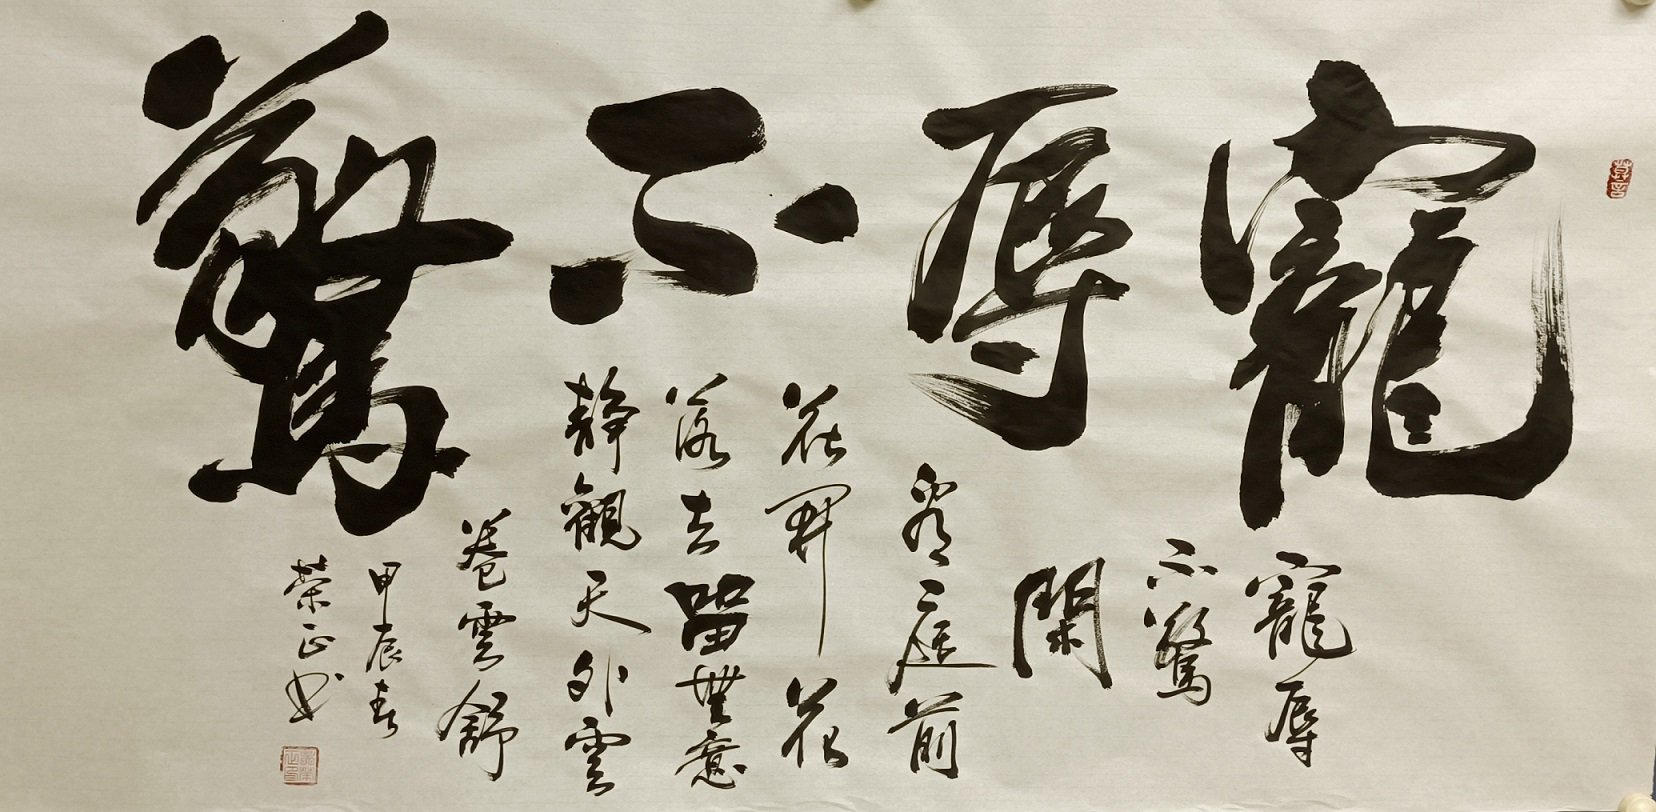 寵辱不驚
寵辱
不驚
閑
看庭前
花開花
落去留無意
靜觀天外雲
卷雲舒
甲辰春
榮正书